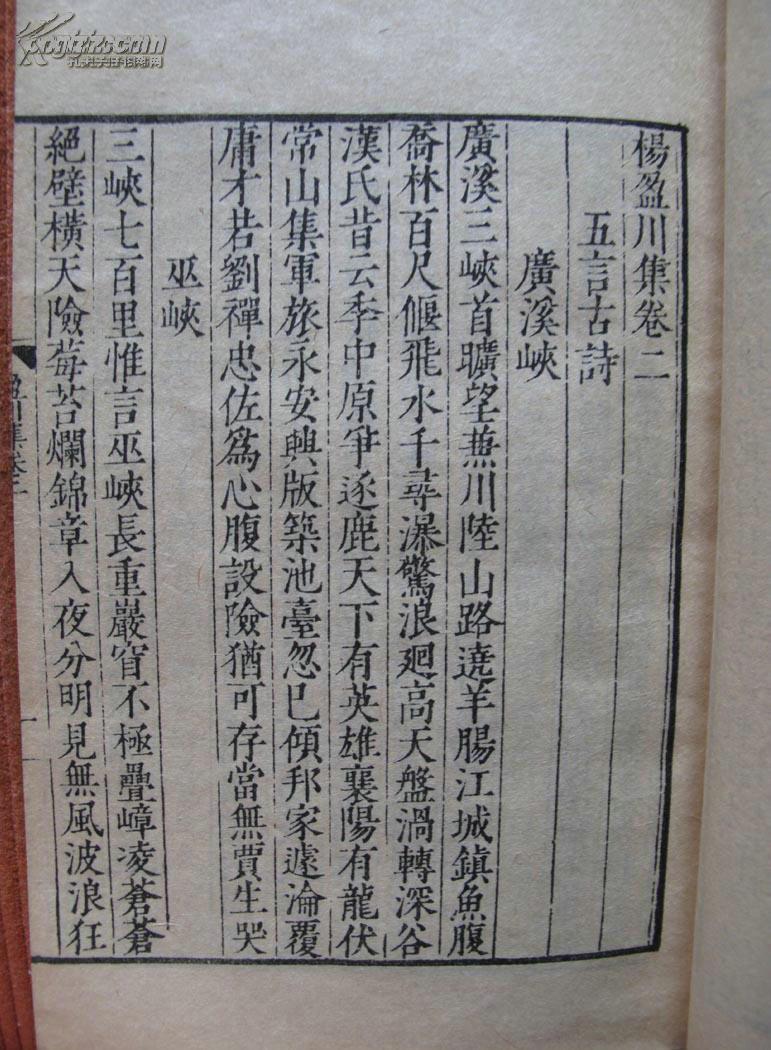 楊盈川集卷二
五言古詩
廣溪峽
廣溪三峽首曠望兼川陸山路遶羊腸江城鎮魚腹
喬林百尺偃飛水千尋瀑驚浪廻高天盤渦轉深谷
漢氏昔云季中原爭逐鹿天下有英雄襄陽有龍伏
常山集軍旅永安興版築池臺忽已傾邦家遽淪覆
庸才若劉禪忠佐爲心腹設險猶可存當無賈生哭
巫峽
三峽七百里惟言巫峽長重巖窅不極疊嶂凌蒼蒼
絕壁橫天險莓苔爛錦章入夜分明見無風波浪狂
盈川集卷二
一
孔夫子旧书网